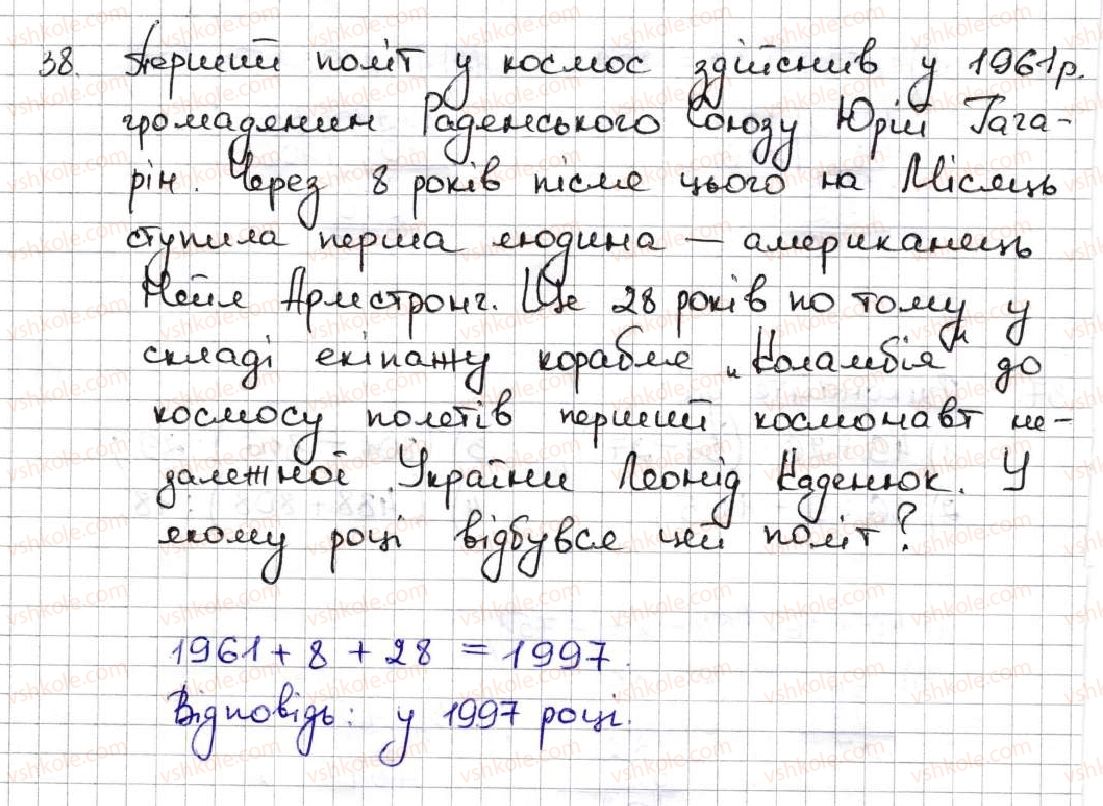 38. Перший політ у космос здійснив у 1961р.
громадянин Радянського Союзу Юрій Гага-
рін. Через 8 років після цього на Місяць
ступила перша людина — американець
Нейл Армстронг. Ще 28 років по тому у
складі екіпажу корабля „Коламбія" до
космосу полетів перший космонавт не-
залежної України Леонід Каденюк. У
якому році відбувся цей політ?
1961 + 8 + 28 = 1997.
Відповідь: у 1997 році.
vshkole.com